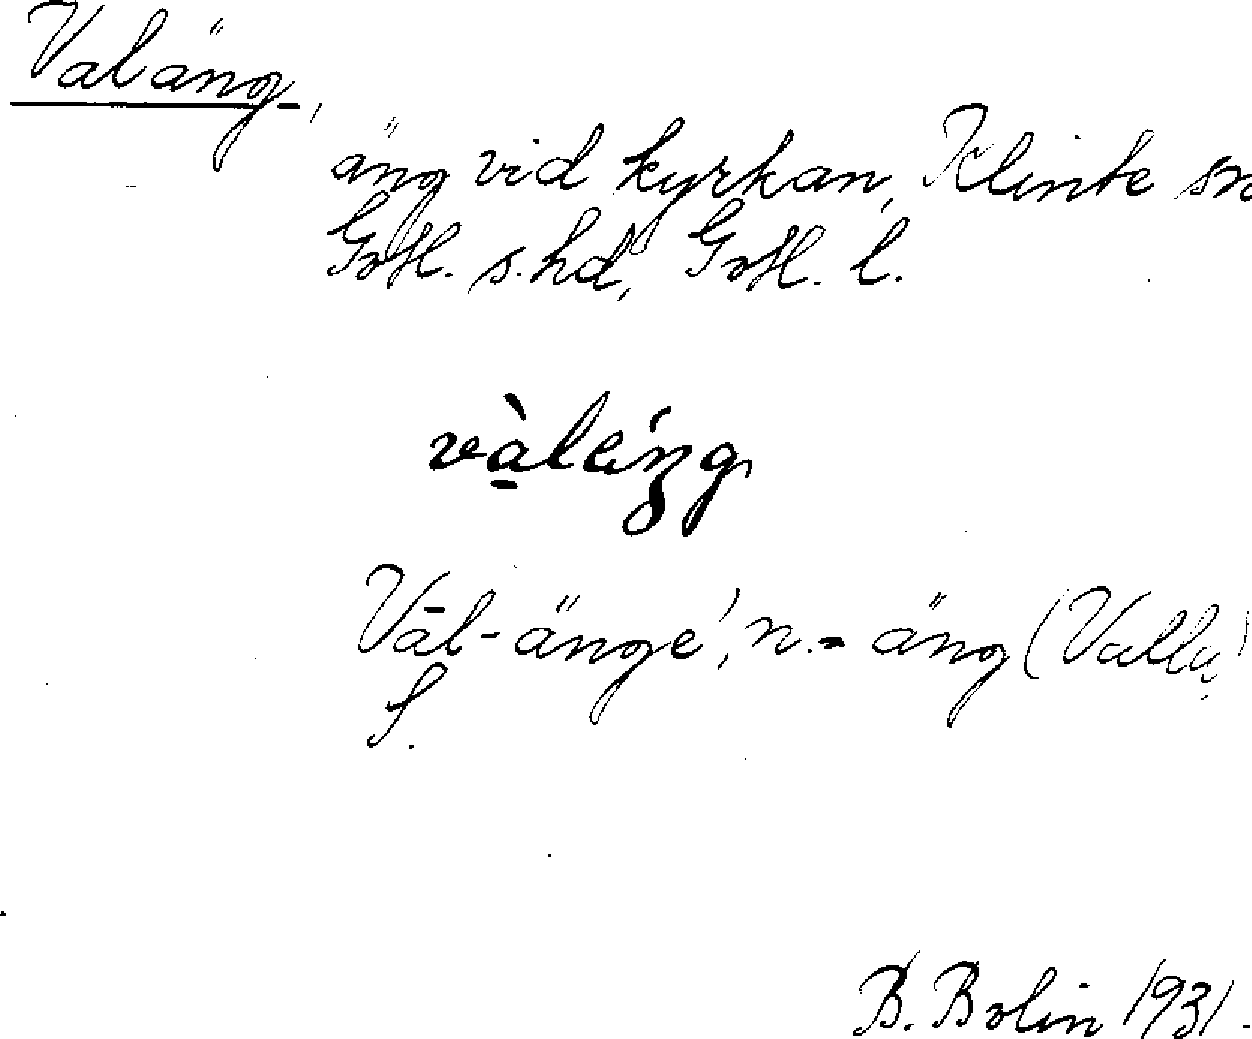 Valäng,
äng vid kyrkan, Klinte sn
Gotl. s. hd, Gotl. l.
vàláng
Vāl-änge', n. = äng (Valla
f.
B. Bolin 1931.